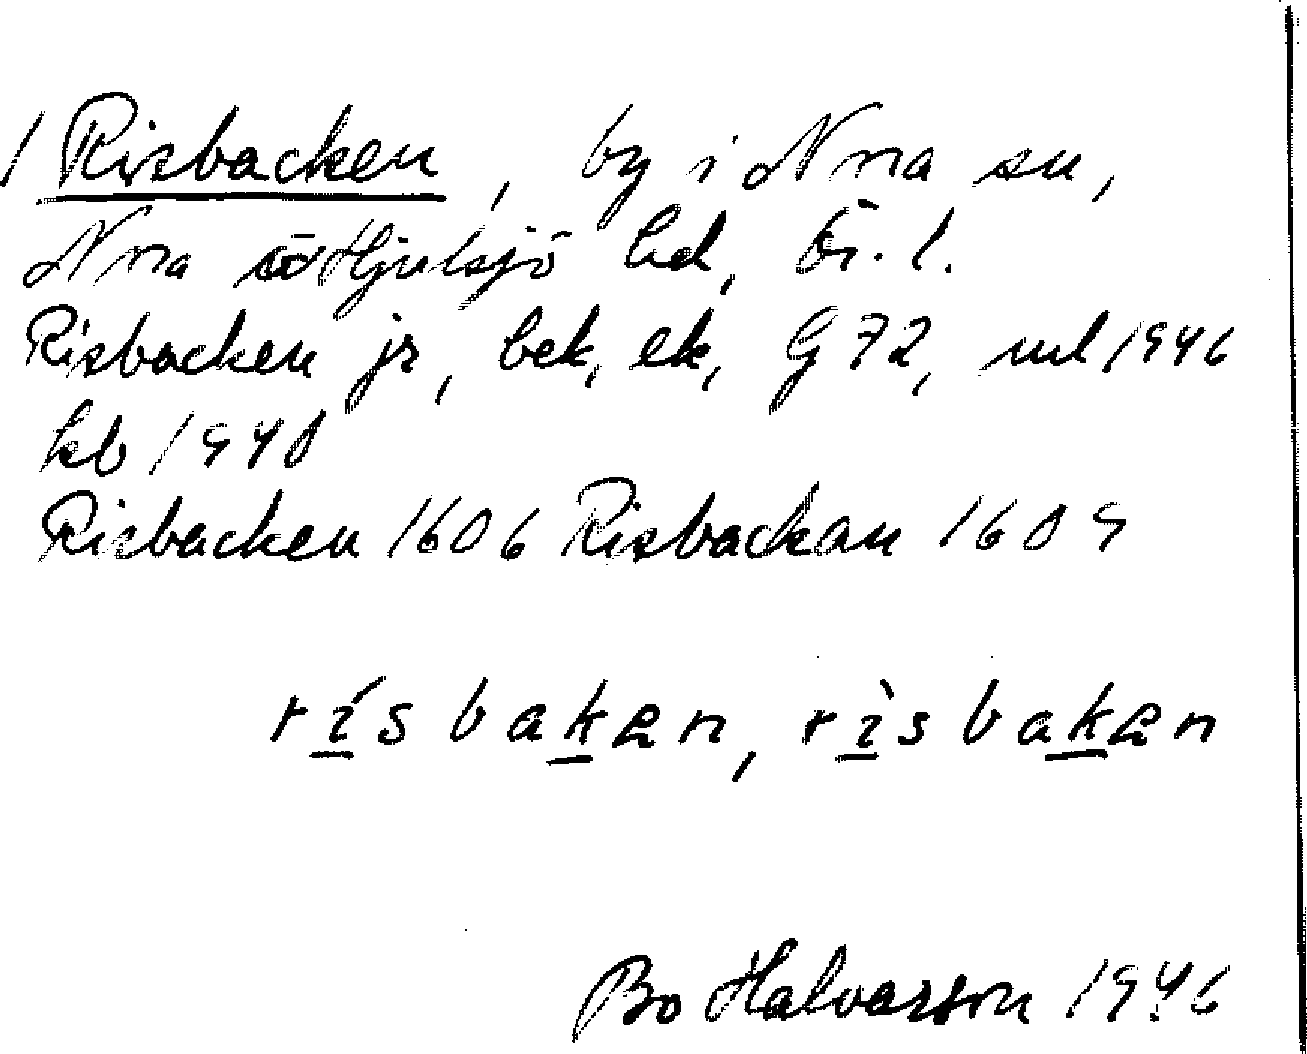 1 Risbacken, by i Nora sn,
Nora o Hjulsjö hd, Ör. l.
Risbacken jr, bek, ek, G 72, ml 1946
kb 1940
Risbacken 1606 Risbackan 1609
rísbaken, rìsbaken
Bo Halvarson 1946